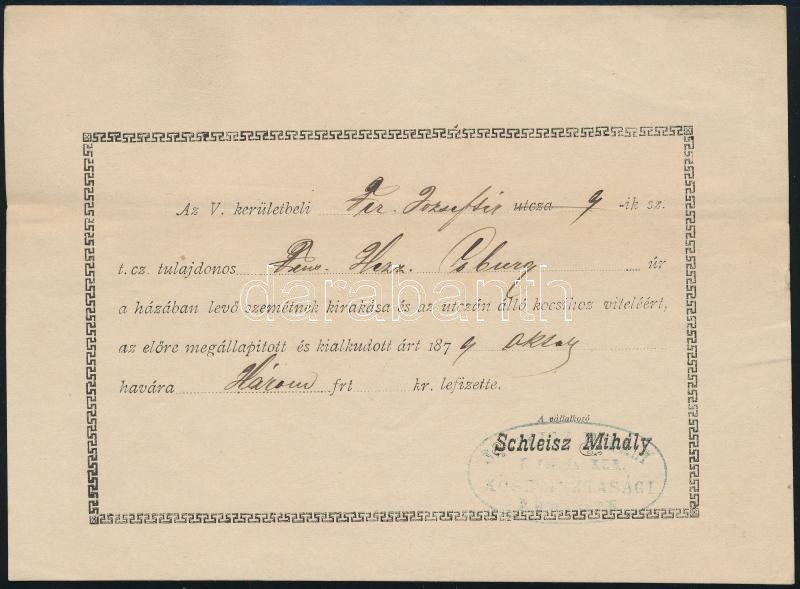 Az V. kerületbeli Fer. Józseftér utcza 9 -ik sz.
t. cz. tulajdonos Hezz. Coburg úr
a házában levő szemétnek kirakása és az utczán álló kocsihoz viteléért,
az előre megállapitott és kialkudott árt 1879
havára Három frt kr. lefizette.
A vállalkozó
Schleisz Mihály
darabanth